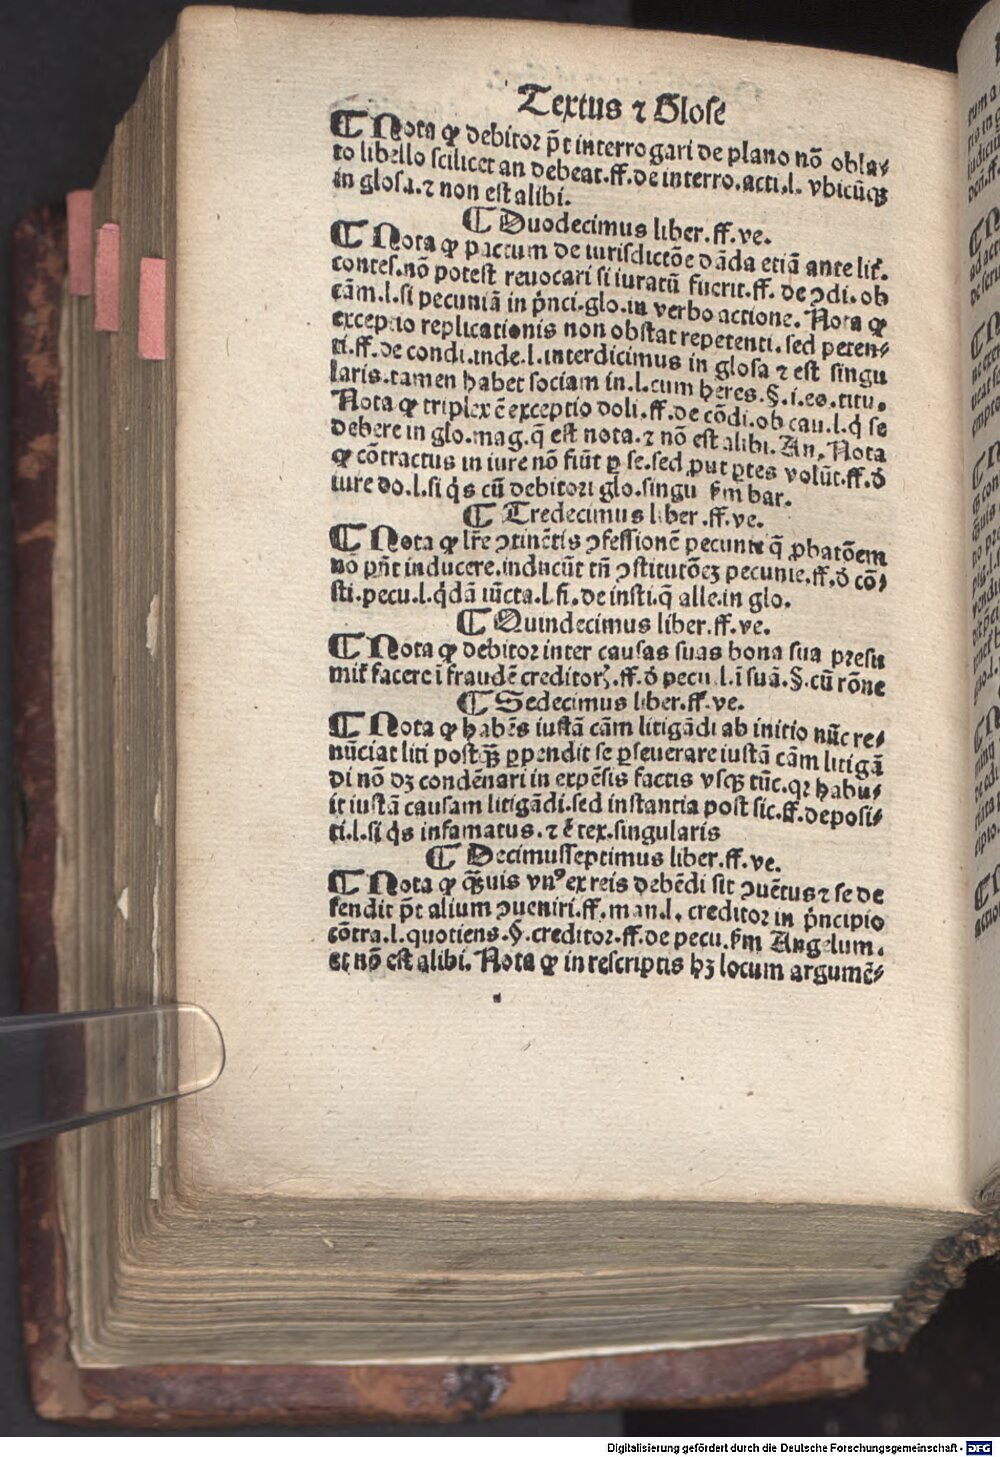 Textus ⁊ Glose
¶ Nota ꝙ debitor põt interrogari de plano nõ obla⸗
to libello scilicet an debeat.ff.de interro.acti.l. vbicũqꝫ
in glosa.⁊ non est alibi.
¶ Duodecimus liber.ff.ve.
¶ Nota ꝙ pactum de iurisdictõe dãda etiã ante lit̃.
contes.nõ potest reuocari si iuratũ fuerit.ff. de ꝯdi.ob
cãm.l.si pecuniã in p̃nci.glo.in verbo actione. Nota ꝙ
exceptio replicationis non obstat repetenti.sed peten⸗
ti.ff.de condi.inde.l.interdicimus in glosa ⁊ est singu
laris.tamen habet sociam in.l.cum heres.§.i.eo.titu.
Nota ꝙ triplex ẽ exceptio doli.ff.de cõdi.ob cau.l.q̇ se
debere in glo.mag.q̃ est nota.⁊ nõ est alibi. An. Nota
ꝙ cõtractus in iure nõ fiũt ꝑ se.sed ꝓut ꝑtes volũt.ff.ď
iure do.l.si q̇s cũ debitori glo.singu ẜm bar.
¶ Tredecimus liber.ff.ve.
¶ Nota ꝙ lr̃e ꝯtinẽtis ꝯfessionẽ pecunie q̃ ꝓbatõem
nõ pñt inducere.inducũt tñ ꝯstitutõeꝫ pecunie.ff.ď cõ⸗
sti.pecu.l.q̇dã iũcta.l.fi.de insti.q̃ alle.in glo.
¶ Quindecimus liber.ff.ve.
¶ Nota ꝙ debitor inter causas suas bona sua presu
mit̃ facere ĩ fraudẽ creditoꝝ.ff.ď pecu.l.ĩ suã.§.cũ rõne
¶ Sedecimus liber.ff.ve.
¶ Nota ꝙ habẽs iustã cãm litigãdi ab initio nũc re⸗
nũciat liti postꝙ̃ ꝑpendit se ꝑseuerare iustã cãm litigã
di nõ dꝫ condẽnari in expẽsis factis vsqꝫ tũc.qꝛ habu⸗
it iustã causam litigãdi.sed instantia post sic.ff.deposi⸗
ti.l.si q̇s infamatus.⁊ ẽ tex.singularis
¶ Decimusseptimus liber.ff.ve.
¶ Nota ꝙ q̃uis vnꝰ ex reis debẽdi sit ꝯuẽtus ⁊ se de
fendit põt alium ꝯueniri.ff.man.l. creditor in p̃ncipio
cõtra.l.quotiens.§.creditor.ff.de pecu.ẜm Angelum.
et nõ est alibi. Nota ꝙ in rescriptis hꝫ locum argumẽ⸗
Digitalisierung gefördert durch die Deutsche Forschungsgemeinschaft - DFG